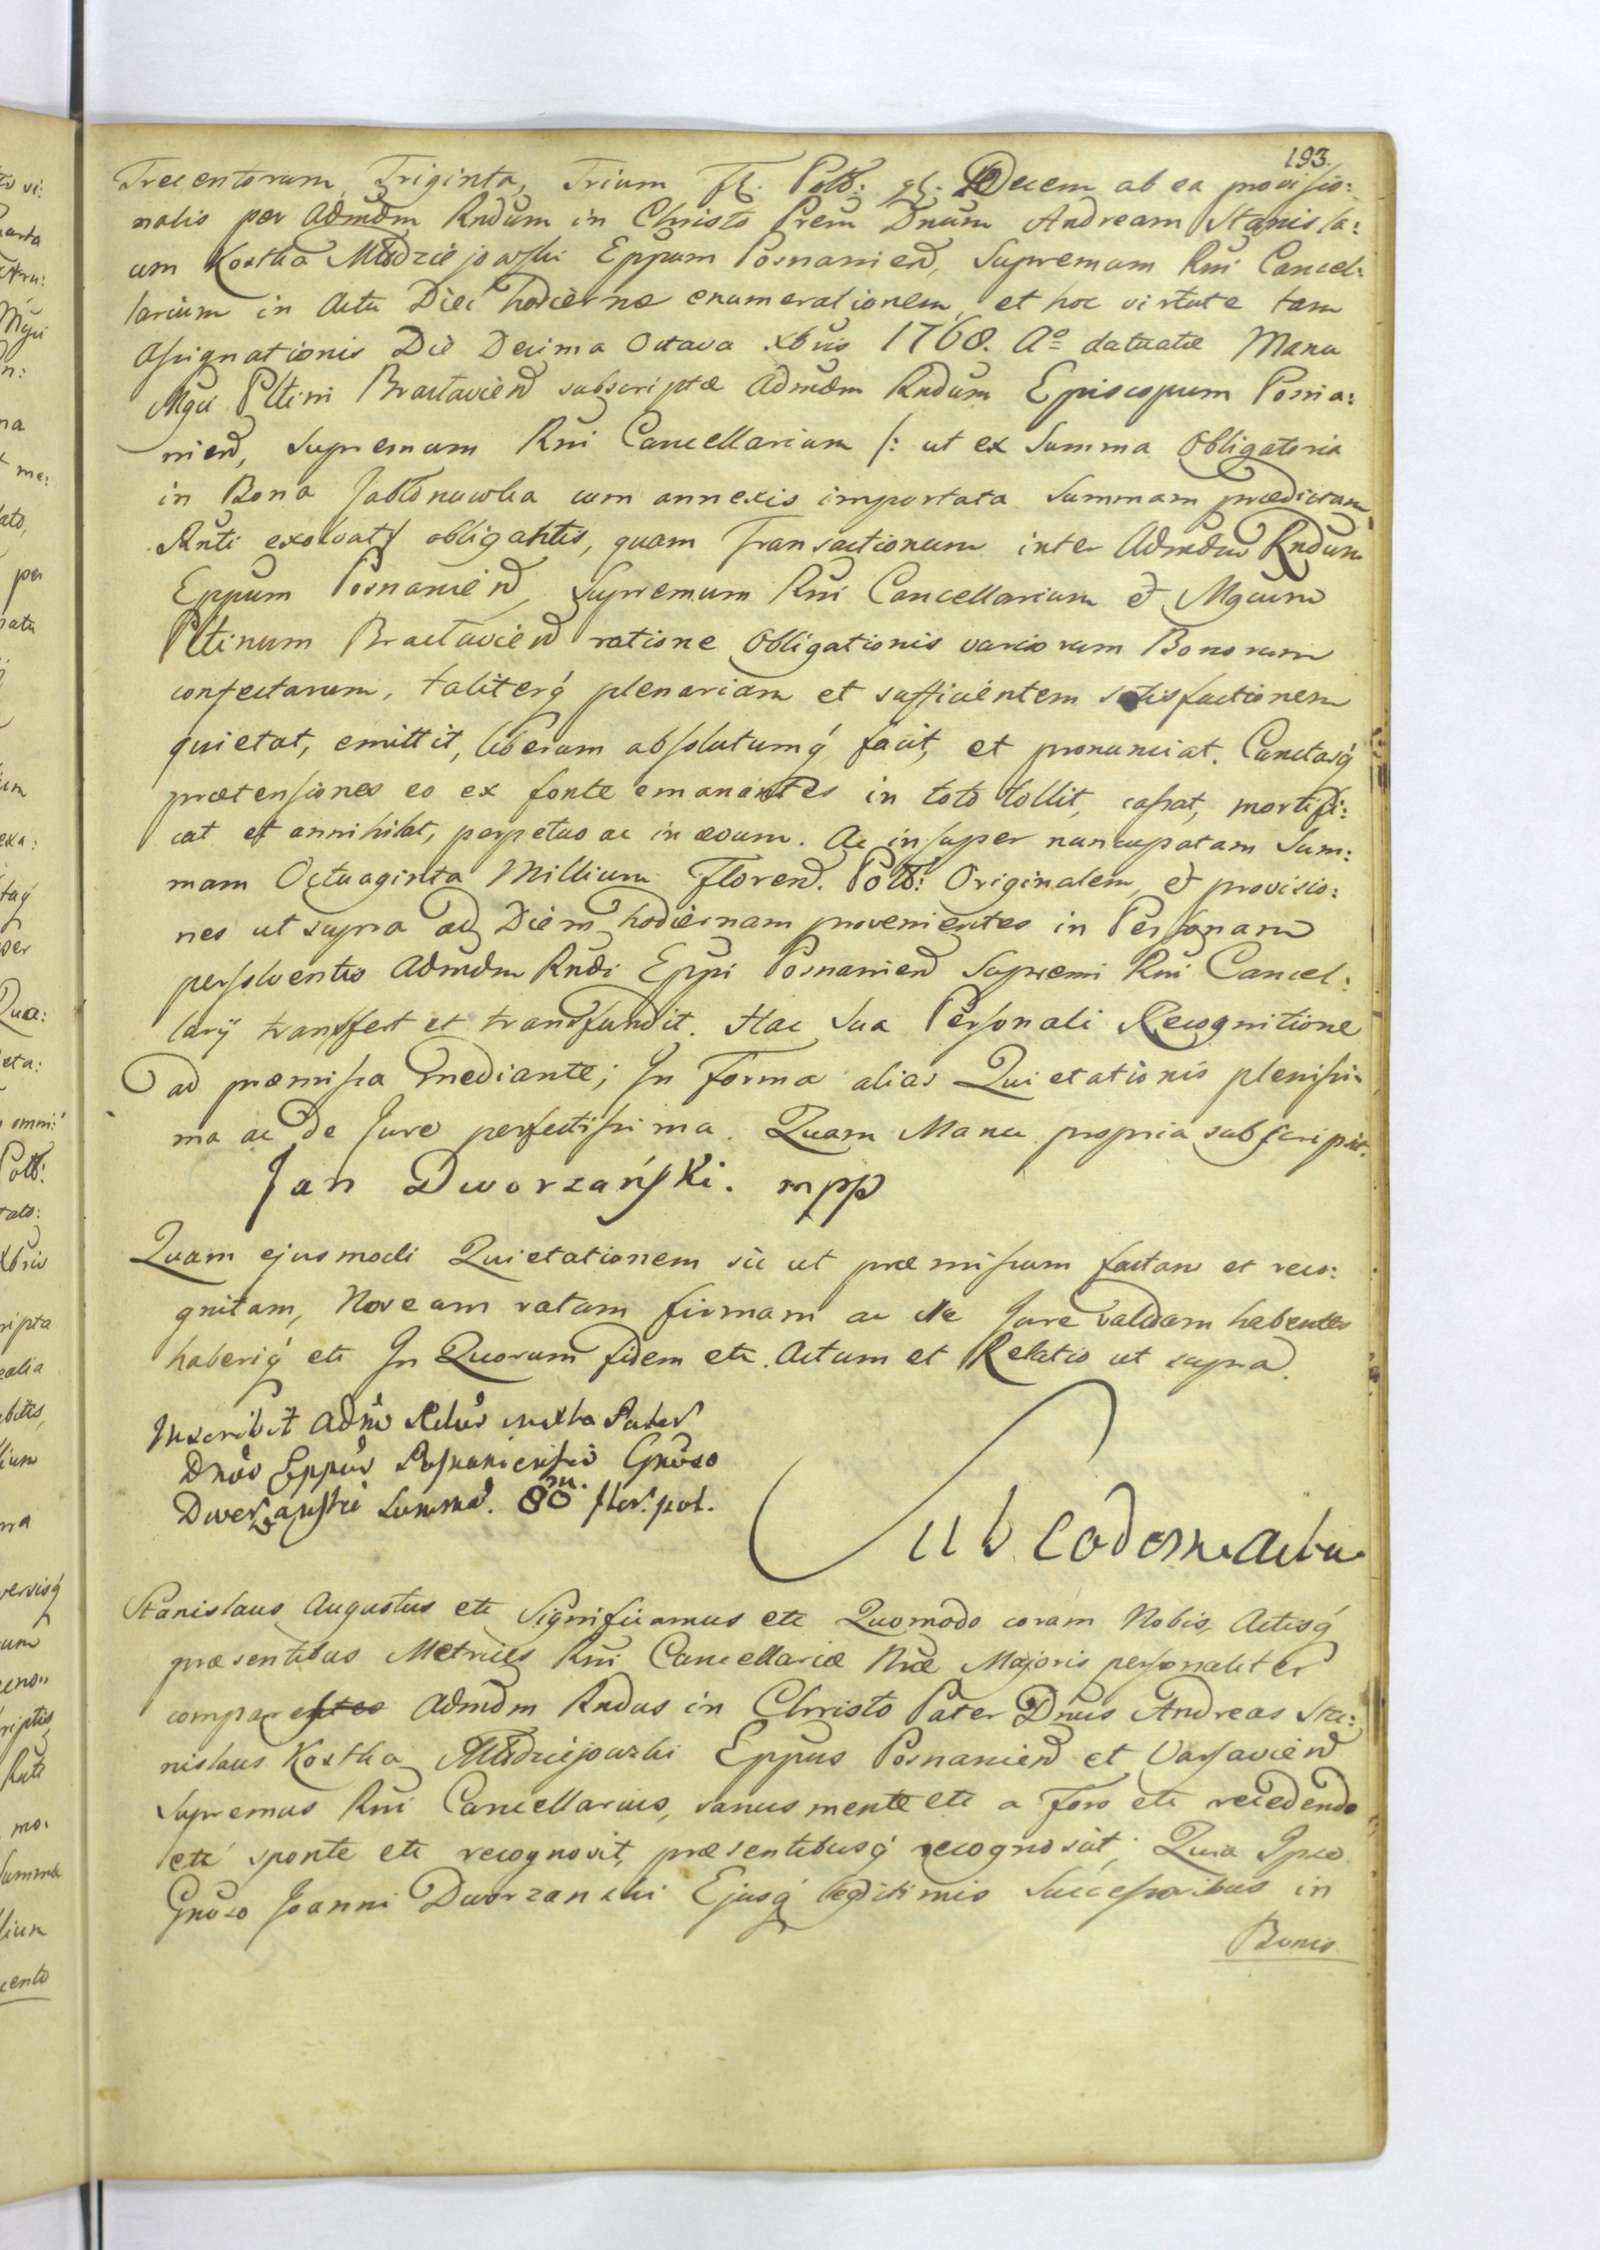 193.
Trecentorum, Triginta, Trium Fl. Poll: gl. Decem ab ea provisio:
nalis per Admdm Rndum in Christo Prem Dnum Andream Stanisla:
um Kostka Młodziejowski Eppum Posnanien, Supremum Rni Cancel:
larium in Actu Diei hodiernæ enumerationem, et hoc virtute tam
Assignationis Die Decima Octava Xbris 1768. Ao datatæ Manu
Mgci Pltini Braclavien subscriptæ Admdm Rndum Episcopum Posna:
nien, Supremum Rni Cancellarium /: ut ex Summa Obligatoria
in Bona Jabłonowka cum annexis importata Summam prædictam
Rnti exolvat/ obligantis, quam Transactionum inter Admdum Rndum
Eppum Posnanien, Supremum Rni Cancellarium et Mgcum
Pltinum Braclavien ratione Obligationis variorum Bonorum
confectarum, taliterq́ plenariam et sufficientem satisfactionem
quietat, emittit, liberum absolutumq́ facit, et pronunciat. Cunctasq́
prætensiones eo ex fonte emanantes in toto tollit, cassat, mortifi:
cat et annihilat, perpetuo ac in ævum. Ac insuper nuncupatam Sum:
mam Octuaginta Millium Floren. Poll: Originalem, et provisio:
nes ut supra ad Diem hodiernam provenientes in Personam
persolventis Admdm Rndi Eppi Posnanien Supremi Rni Cancel:
larÿ transfert et transfundit. Hac Sua Personali Recognitione
ad præmissa mediante; In Forma alias Quietationis plenissi:
ma ac de Jure perfectissima. Quam Manu propria subscripsit.
Jan Dworzański. mpp
Quam ejusmodi Quietationem sic ut præmissum factam et reco:
gnitam, Nos eam ratam firmam ac de Jure validam habentes
haberiq́ etc In Quorum fidem etc. Actum et Relatio ut supra.
Inscribit Adm Rdus Pater
Dnus Eppus Posnaniensis Gnoso
Dworzański Summa. 80 m. flor. pol.
Sub eodem Actu
Stanislaus Augustus etc Significamus etc Quomodo coram Nobis, Actisq́
præsentibus Metrices Rni Cancellariæ Nræ Majoris personaliter
comparestes Admdm Rndus in Christo Pater Dnus Andreas Sta:
nislaus Kostka Młodziejowski Eppus Posnanien et Varsavien
Supremus Rni Cancellarius, sanus mente etc a Foro etc recedendo
etc sponte etc recognovit, præsentibusq́ recognoscit; Quia Ipse
Gnoso Joanni Dworzanski Ejusq́ legitimis Successoribus in
Bonis